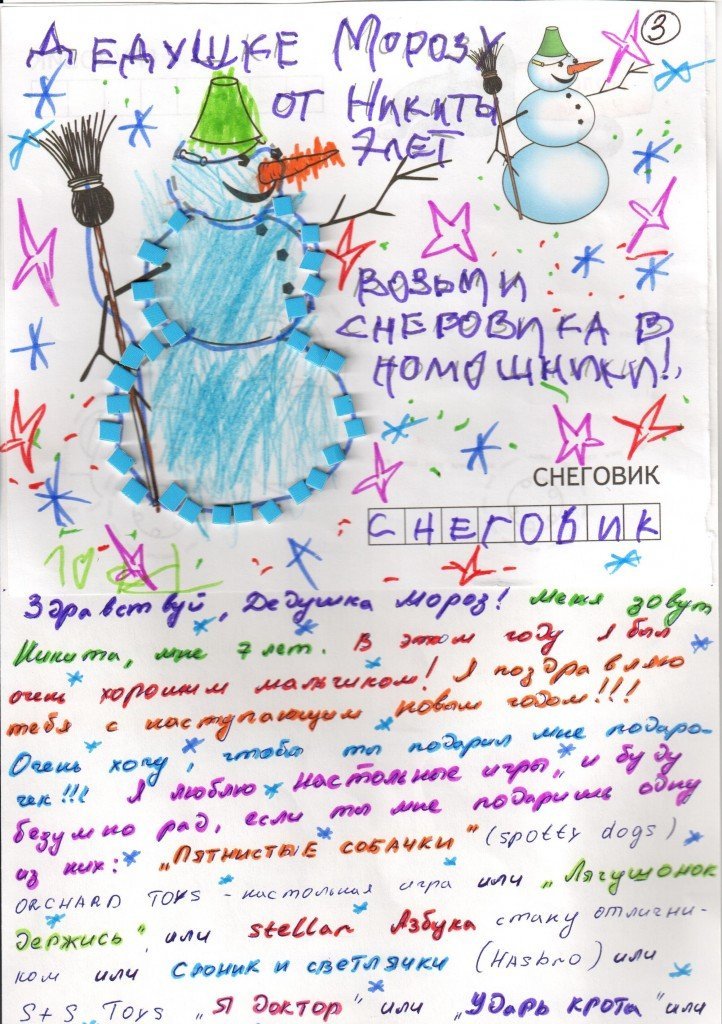 3
Дедушке Морозу
от Никиты
7 лет
Возьми
снеговика в
помошники!
СНЕГОВИК
СНЕГОВИК
Здравствуй, Дедушка Мороз! Меня зовут
Никита, мне 7 лет. В этом году я был
очень хорошим мальчиком! Я поздравляю
тебя с наступающим Новым годом!!!
Очень хочу, чтобы ты подарил мне подаро-
чек!!! Я люблю настольные игры, и буду
безумно рад, если ты мне подаришь одну
из них: "Пятнистые собачки" (spotty dogs)
ORCHARD TOYS - настольная игра или „Лягушонок
держись", или Stellar Азбука стану отлични-
ком или Слоник и светлячки (Hasbro) или
S+S Toys „Я доктор" или „Ударь крота" или